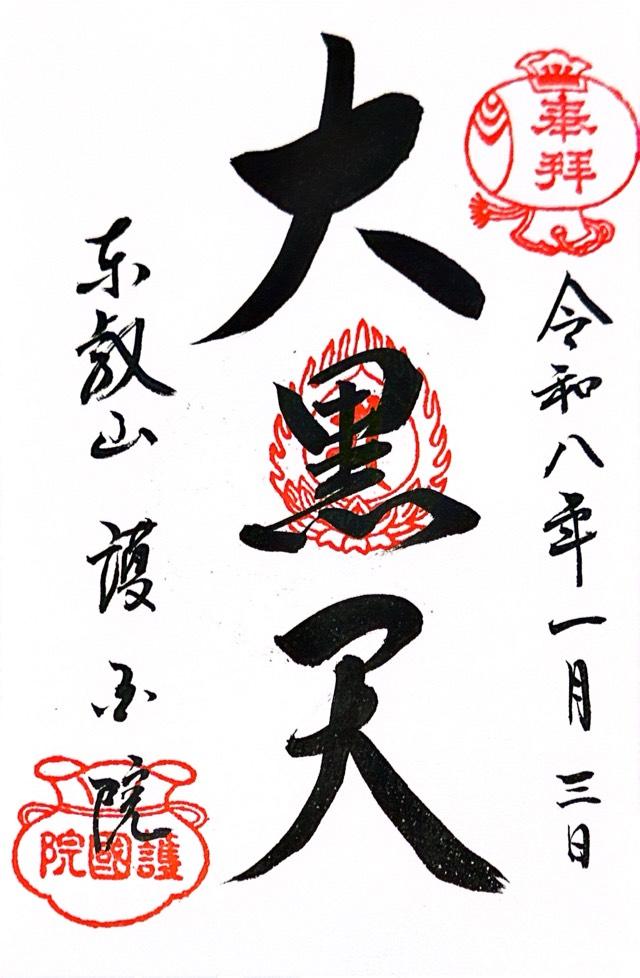 奉拝
令和八年一月三日
大黒天
东叡山 護国院
護國院